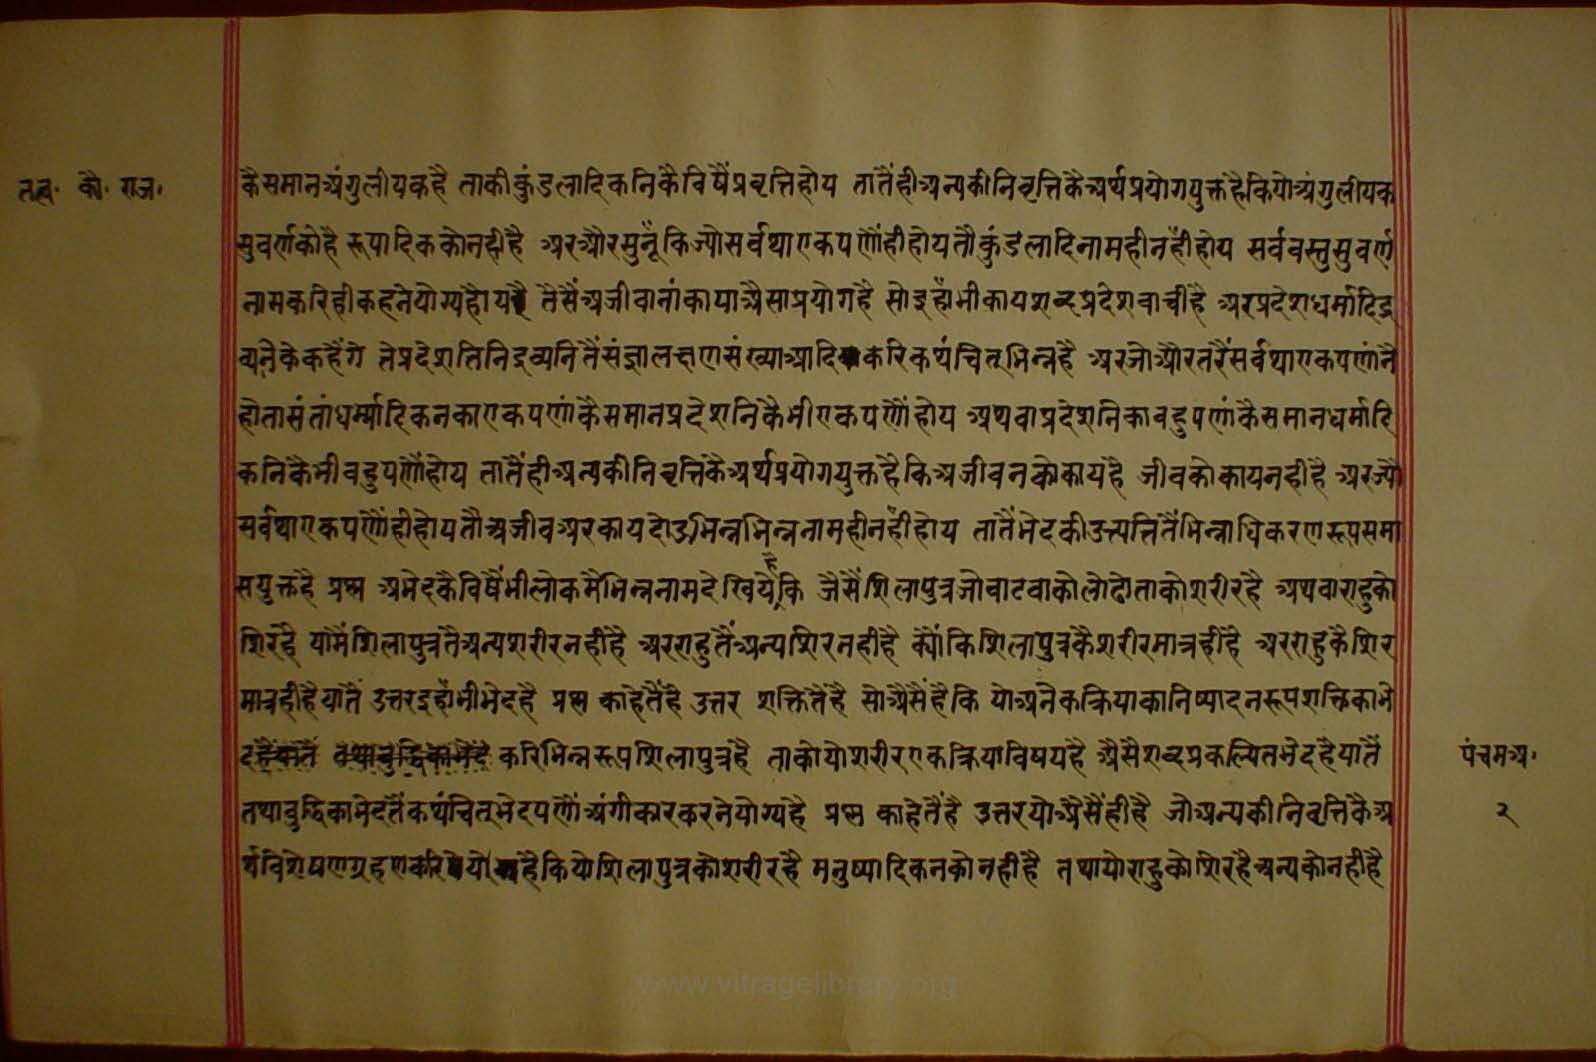 तत्व॰ कौ॰ राज॰
कैसमानअंगुलीयकहै ताकीकुंडलादिकनिकैविषैंप्रवृत्तिहोय तातैंहीअन्यकीनिवृत्तिकैअर्थप्रयोगयुक्तहैकियोअंगुलीयक
सुवर्णकोहै रूपादिककोनहीहै अरऔरसुनूंकिज्योसर्वथाएकपणौंहीहोयतौकुंडलादिनामहीनहींहोय सर्ववस्तुसुवर्ण
नामकरिहीकहनेयोग्यहोय तैसैंअजीवानांकायाऐसाप्रयोगहै सोइहांभीकायशब्दप्रदेशवाचीहै अरप्रदेशधर्मादिद्र
व्यनैकेकहैंगे तेप्रदेशतिनिद्रव्यनितैंसंज्ञालक्षणसंख्याआदिकरिकथंचित्भिन्नहै अरजोऔरतरैंसर्वथाएकपणांनै
होतासंतांधर्म्मादिकनकाएकपणांकैसमानप्रदेशनिकैभीएकपणौंहोय अथवाप्रदेशनिकाबहुपणांकैसमानधर्मादि
कनिकैभीबहुपणौंहोय तातैंहीअन्यकीनिवृत्तिकैअर्थप्रयोगयुक्तहैकिअजीवनकोकायहै जीवकोकायनहीहै अरज्यौ
सर्वथाएकपणौंहीहोयतौअजीवअरकायदोऊभिन्नभिन्ननामहीनहींहोय तातैंभेदकीउत्पत्तितैंभिन्नाधिकरणरूपसमा
सयुक्तहै प्रश्न अभेदकैविषैंभीलोकमैंभिन्ननामदेखियेहैकि जैसैंशिलापुत्रजोवाटवाकोलोढोताकोशरीरहै अथवाराहुको
शिरहै यामैंशिलापुत्रतैंअन्यशरीरनहींहै अरराहुतैंअन्यशिरनहींहै क्योंकिशिलापुत्रकैशरीरमात्रहींहै अरराहुकैशिर
मात्रहीहैयातैं उत्तरइहांभीभेदहै प्रश्न काहेतैंहै उत्तर शक्तितैंहै सोऐसैंहैकि योअनेकक्रियाकानिष्पादनरूपशक्तिकाभे
द करिभिन्नरूपशिलापुत्रहै ताकोयोशरीरएकक्रियाविषयहै ऐसैशब्दप्रकल्पितभेदहैयातैं
पंचमअ॰
तथाबुद्धिकाभेदतैंकथंचित्भेदपणौंअंगीकारकरनेयोग्यहै प्रश्न काहेतैंहै उत्तरयोऐसैंहीहै जोअन्यकीनिवृत्तिकैअ
२
र्थविशेषणग्रहणकरियेहैकियोशिलापुत्रकोशरीरहै मनुष्यादिकनकोनहींहै तथायोराहुकोशिरहैअन्यकोनहींहै
www.vitragelibrary.org